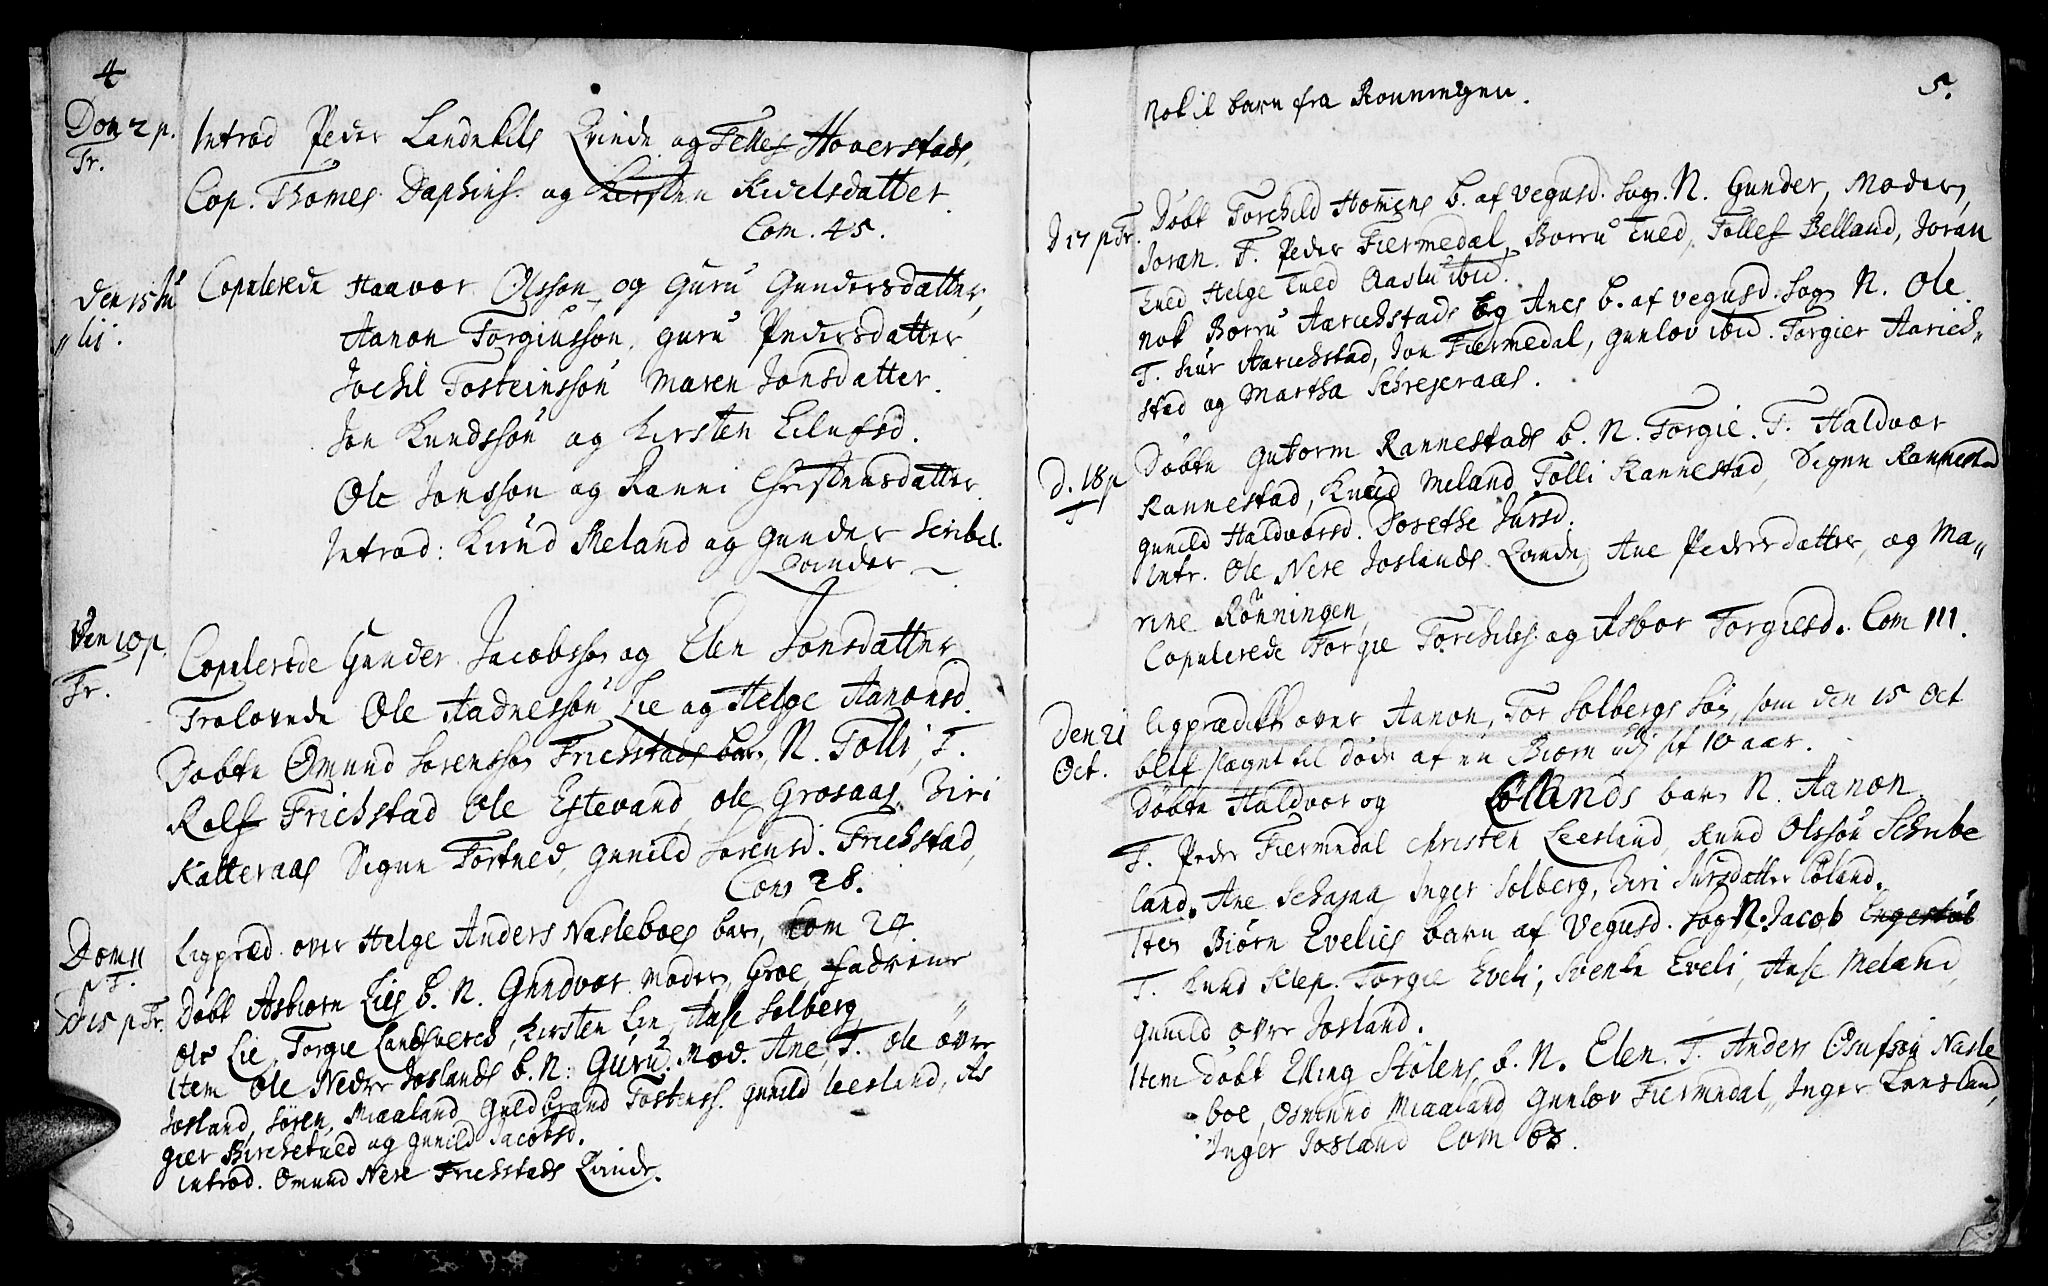 4
Dom 2 p. Introd Peder Landekils Qvinde og Tellef Hoverstads
Tr.
Cop. Thomes Daphins. og Kirsten Kivelsdatter.
Com. 45.
den 15 Ju Copulerede Haavor Olsson og Guru Gundersdatter,
„lii. Aanon Torgiusson, guru Pedersdatter
Jochil Tosteinsson Maren Jonsdatter.
Jon Knudsson og Kirsten Eilufsd.
Ole Jonsson og Ranni Christensdatter.
Introd: Knud Meland og Gunder Scribel.
Qvinder
Den 10 p. Copulerede Gunder Jacobsson og Elen Jonsdatter
Tr. Trolovede Ole Aadnesson Lie og Helge Aanonsd.
Døbte Omund Sorensson Frichstads barn, N. Tolli, F.
Rolf Frichstad Ole Estevand, ole Grosaas, Siri
Katteraas Signe Tortved, Gunild Sorensd. Frichstad,
Com 28.
Dom 11 Ligpræd. over Helge Anders Nasleboes barn, Com 24.
p T.
D 15 p Tr. Døbt Asbiørn Lies b. N. Gundvor moder, Groe, fadrene
Ole Lie, Torgie Landsverch, Kirsten Lie, Aase Solberg,
Item Ole Nedre Joslands b. N: Guru. Mod. Ane, F. ole øvre
Josland, Søren, Miaaland, Guldbrand Tostenss. gunild leesland, As
gier Birchetved og gunild Jacobsd.
introd. Omund Nere Frichstads Qvinde.
5.
Nok it barn fra Ronningen.
D 17 p Tr. Døbt Torchild Homens b. af Vegusd. Sogn. N. Gunder, Moder,
Joran. F. Peder Fiermedal, Borru tved, Tollef Belland, Joran
tved Helge tved Aaslu ibid.
Nok Borru Aarichstads og Anes b. af vegusd. Sogn N. Ole.
F. Siur Aarichstad, Jon Fiermedal, gunlov ibid. Torgier Aarich„
stad og Martha Schrejeraas.
D. 18 p Døbte Gutorm Rannestads b. N. Torgie. F. Haldvor
T Rannestad, Knud Meland, Tolli Rannestad, Signe Rannestad
gunild Haldvorsd. Dorethe Jursd.
Intr. Ole Nere Joslands Qvinde, Ane Pedersdatter, og Ma„
rine Rønningen,
Copulerede Torgie Torchilss og Asbor Torgiesd. Com 111.
Den 21 ligprædik over Aanon, Tor Solbergs Søn, som den 15 Oct
Oct. blef slaget til døde af en Biørn udj sit 10 aar.
Døbte Haldvor og Cølands barn N. Aanon.
F. Peder Fiermedal Christen Leesland, Knud Olsson Schribe
land, Ane Inger Solberg, Siri Jursdatter Cøland.
Item Biørn Evelies barn af Vegusd. Sogn N. Jacob
F. Knud Klep. Torgie Eveli, Svenke Eveli, Aase Meland,
gunild øvre Josland.
Item døbt Elling Stølens b. N. Elen. F. Anders Osufson Nasle
boe, Osmund Miaaland Gunlov Fiermedal, Inger Lansland,
Inger Josland Com 63.